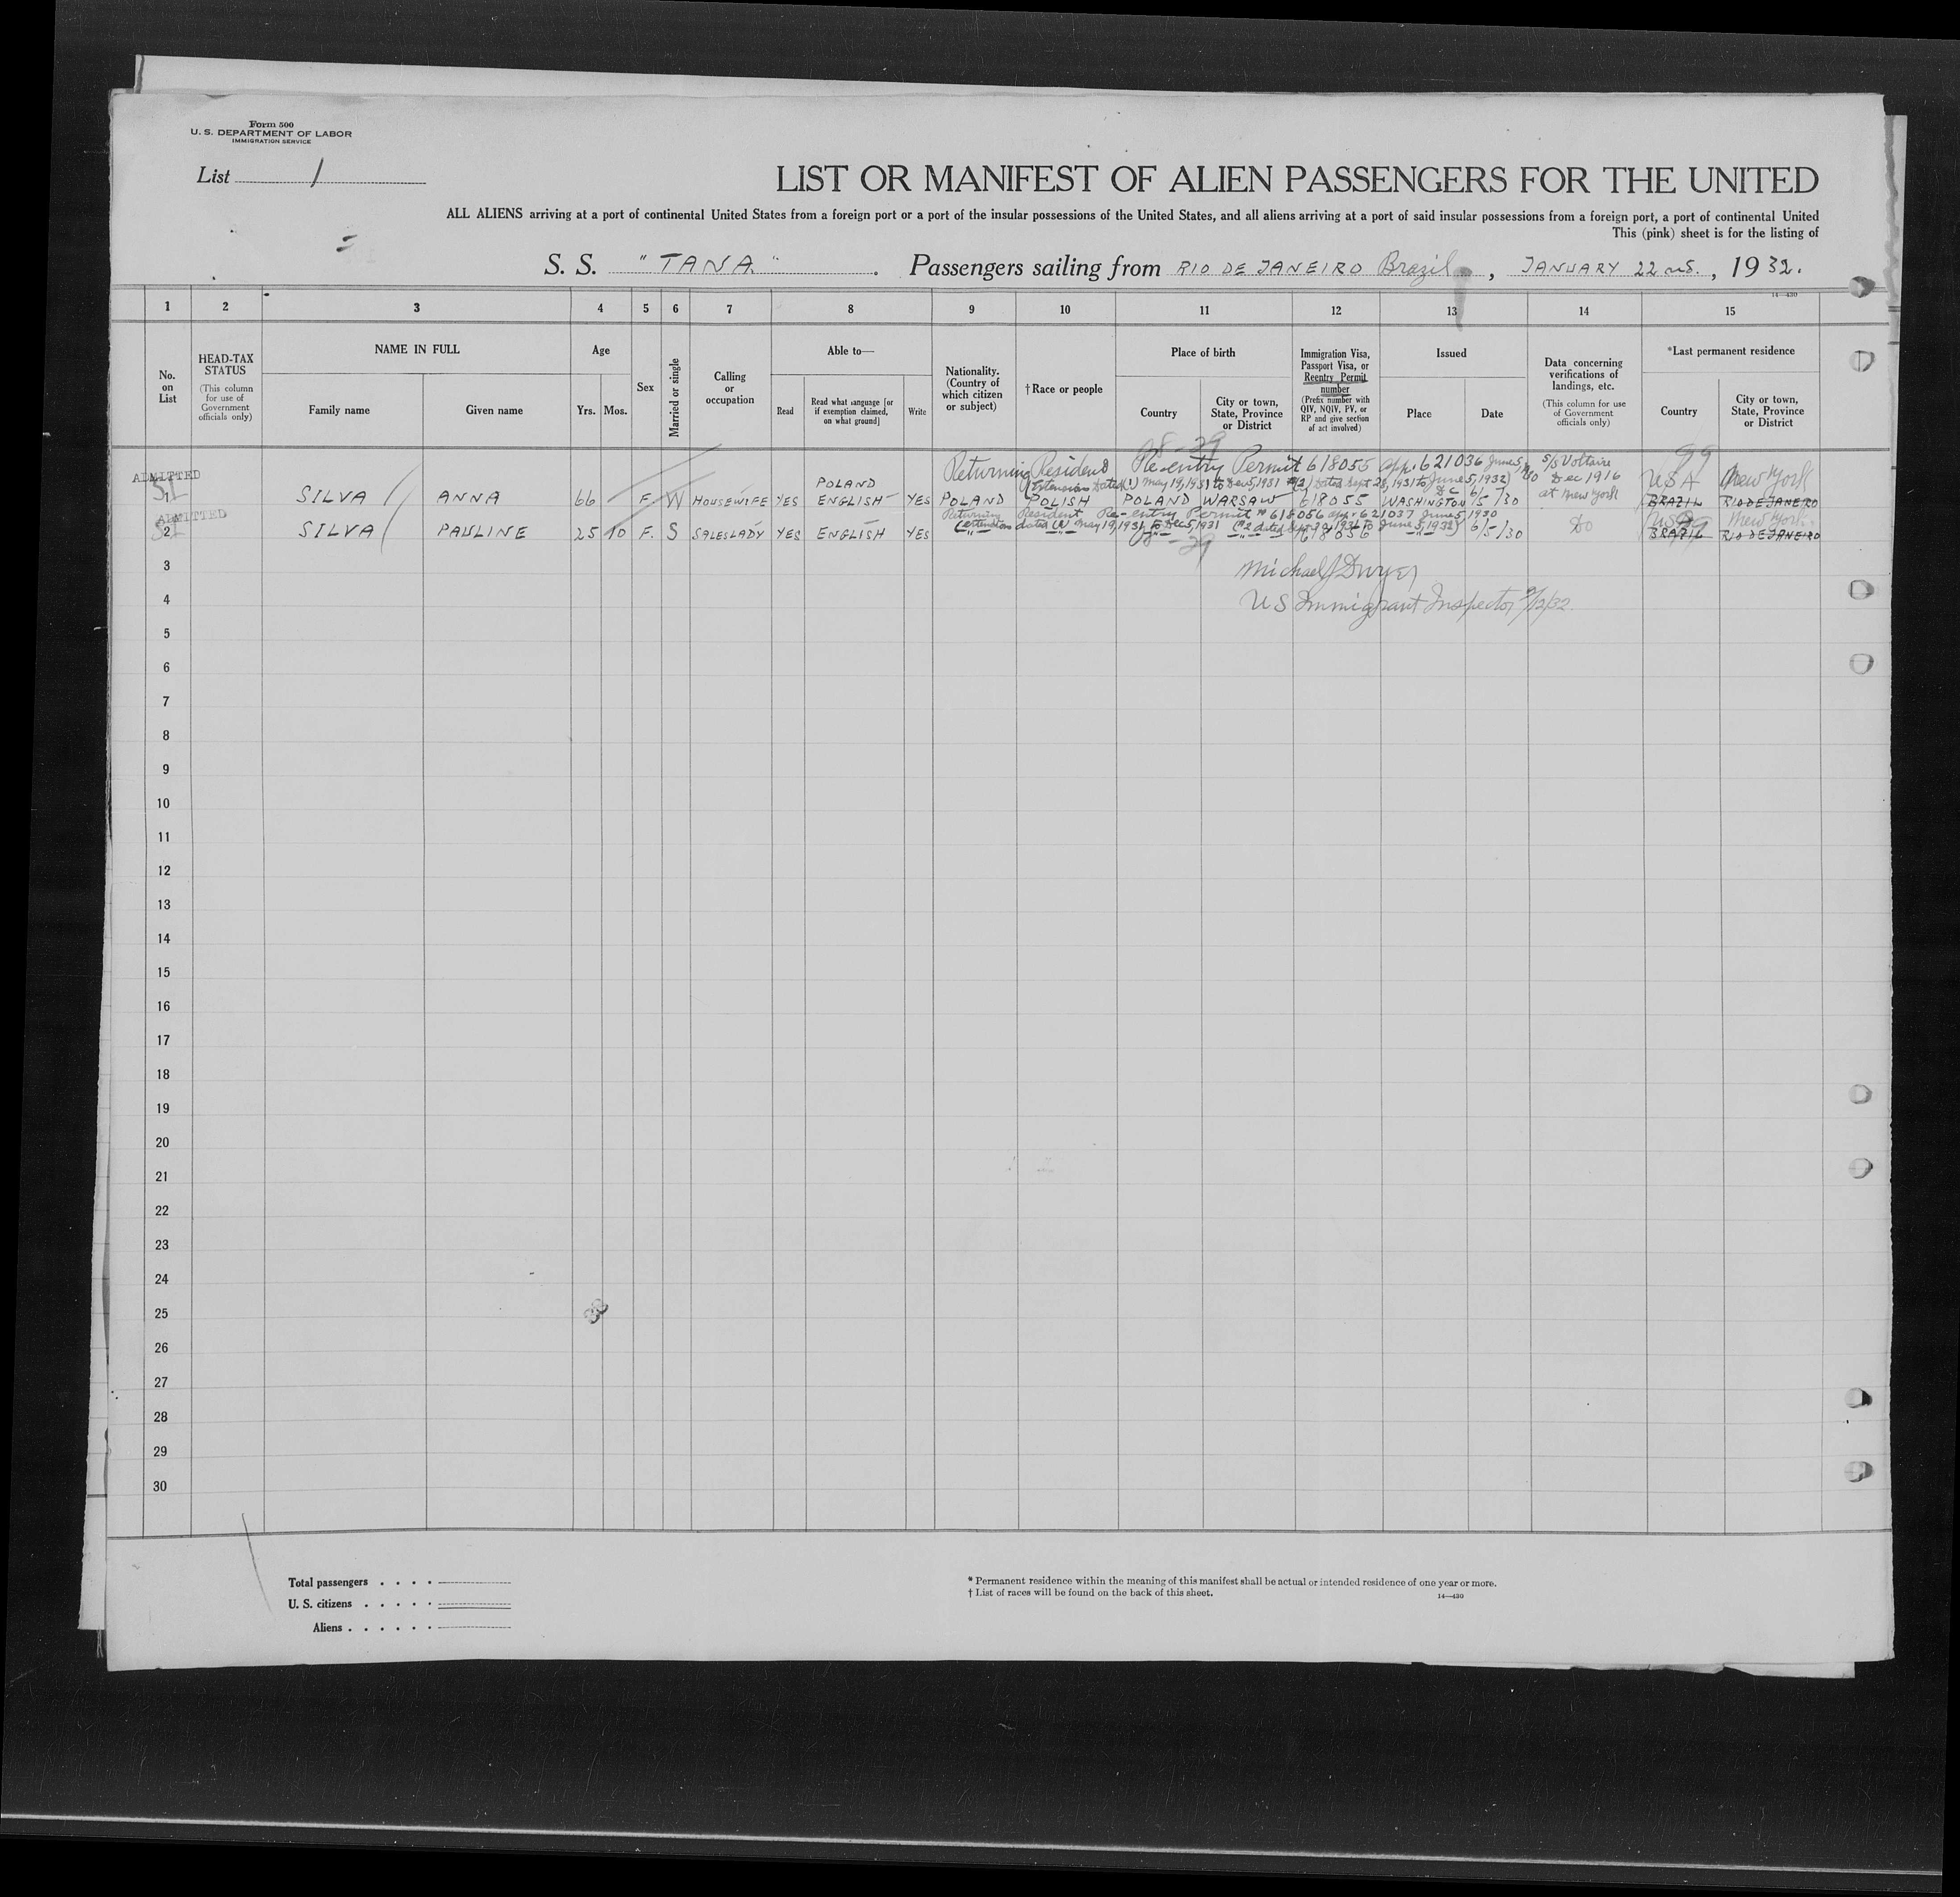 Form 500
U. S. DEPARTMENT OF LABOR
IMMIGRATION SERVICE
List 1
LIST OR MANIFEST OF ALIEN PASSENGERS FOR THE UNITED
ALL ALIENS arriving at a port of continental United States from a foreign port or a port of the insular possessions of the United States, and all aliens arriving at a port of said insular possessions from a foreign port, a port of continental United
This (pink) sheet is for the listing of
S. S. "TANA" . Passengers sailing from RIO DE JANEIRO Brazil , JANUARY 22nd. , 1932.
14—430
1 2 3 4 5 6 7 8 9 10 11 12 13 14 15
No. on List
HEAD-TAX STATUS
(This column for use of Government officials only)
NAME IN FULL
Family name Given name
Age
Yrs. Mos.
Sex
Married or single
Calling or occupation
Able to—
Read
Read what language [or if exemption claimed, on what ground]
Write
Nationality. (Country of which citizen or subject)
†Race or people
Place of birth
Country
City or town, State, Province or District
Immigration Visa, Passport Visa, or Reentry Permit number
(Prefix number with QIV, NQIV, PV, or RP and give section of act involved)
Issued
Place Date
Data concerning verifications of landings, etc.
(This column for use of Government officials only)
*Last permanent residence
Country
City or town, State, Province or District
8-29 99
Returning Resident Re-entry Permit 618055 app. 621036 June 5, S/S Voltaire
ADMITTED POLAND (Extension dated (1) May 19, 1931 to Dec 5, 1931 #(2) dated Sept 28, 1931 to June 5, 1932) Dec 1916 USA New York
1 SILVA ANNA 66 F. W HOUSEWIFE YES ENGLISH YES POLAND POLISH POLAND WARSAW 618055 WASHINGTON DC 6/5/30 at New York BRAZIL RIO DE JANEIRO
ADMITTED Returning Resident Re-entry Permit # 618056 app. 621037 June 5, 1930 USA New York.
2 SILVA PAULINE 25 10 F. S SALESLADY YES ENGLISH YES 618056 6/5/30 Do BRAZIL RIO DE JANEIRO
(extension dated (1) May 19, 1931 to Dec 5, 1931 (#2 dated to June 5, 1932)
3 Michael J Dwyer
4 US Immigrant Inspector 2/12/32
5
6
7
8
9
10
11
12
13
14
15
16
17
18
19
20
21
22
23
24
25
26
27
28
29
30
Total passengers . . . .
U. S. citizens . . . . .
Aliens . . . . . .
* Permanent residence within the meaning of this manifest shall be actual or intended residence of one year or more.
† List of races will be found on the back of this sheet.
14—430